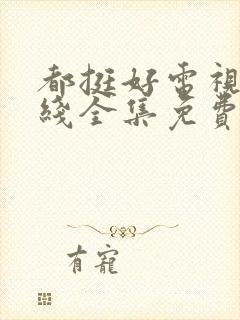 都挺好電視
綫全集免費
有寵